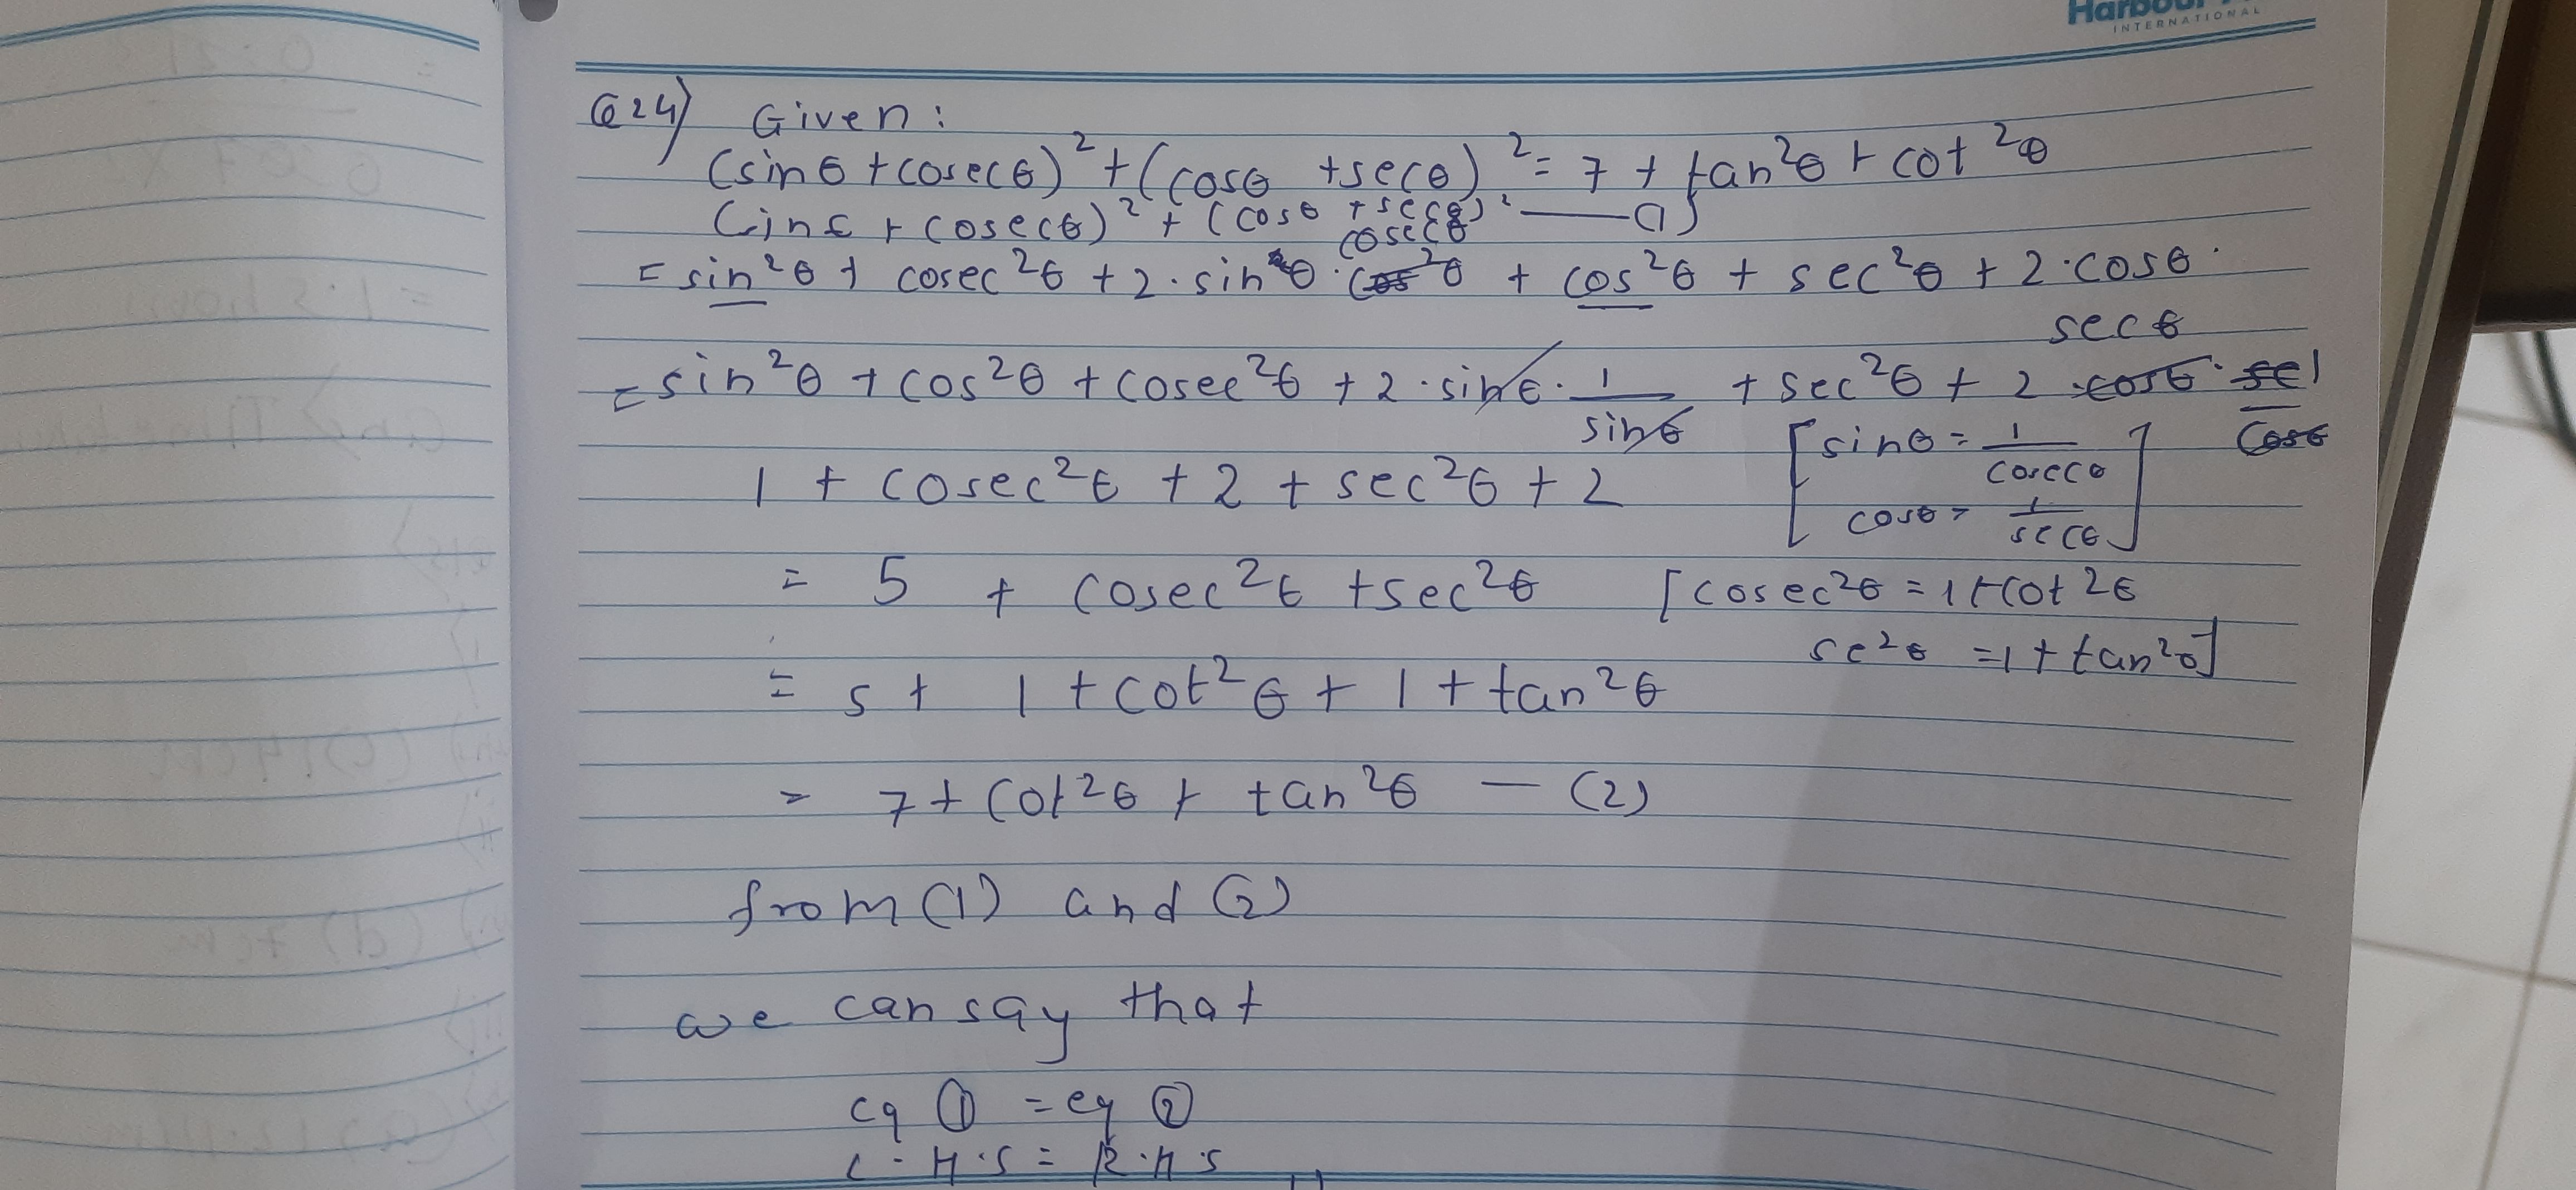 Harbour
INTERNATIONAL
Q24) Given:
(sinθ + cosecθ)² + (cosθ + secθ)² = 7 + tan²θ + cot²θ
(sinθ + cosecθ)² + (cosθ + secθ)² — (1)
= sin²θ + cosec²θ + 2·sinθ·cosecθ + cos²θ + sec²θ + 2·cosθ·secθ
= sin²θ + cos²θ + cosec²θ + 2·sinθ·1/sinθ + sec²θ + 2·cosθ·1/cosθ
[sinθ = 1/cosecθ]
1 + cosec²θ + 2 + sec²θ + 2 [cosθ = 1/secθ]
= 5 + cosec²θ + sec²θ [cosec²θ = 1 + cot²θ
sec²θ = 1 + tan²θ]
= 5 + 1 + cot²θ + 1 + tan²θ
= 7 + cot²θ + tan²θ — (2)
from (1) and (2)
we can say that
eq ① = eq ②
L.H.S = R.H.S